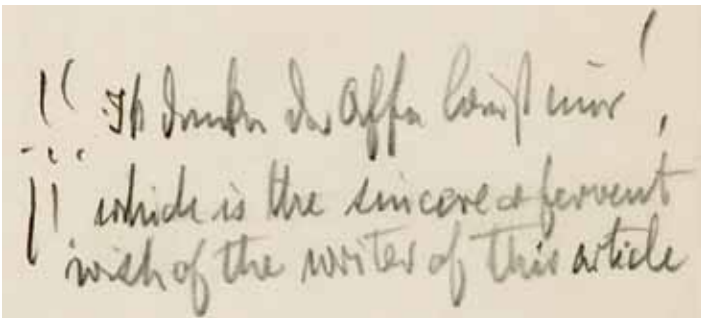 !! "Ich denke der Affe laust mir",
!! which is the sincere & fervent
wish of the writer of this article